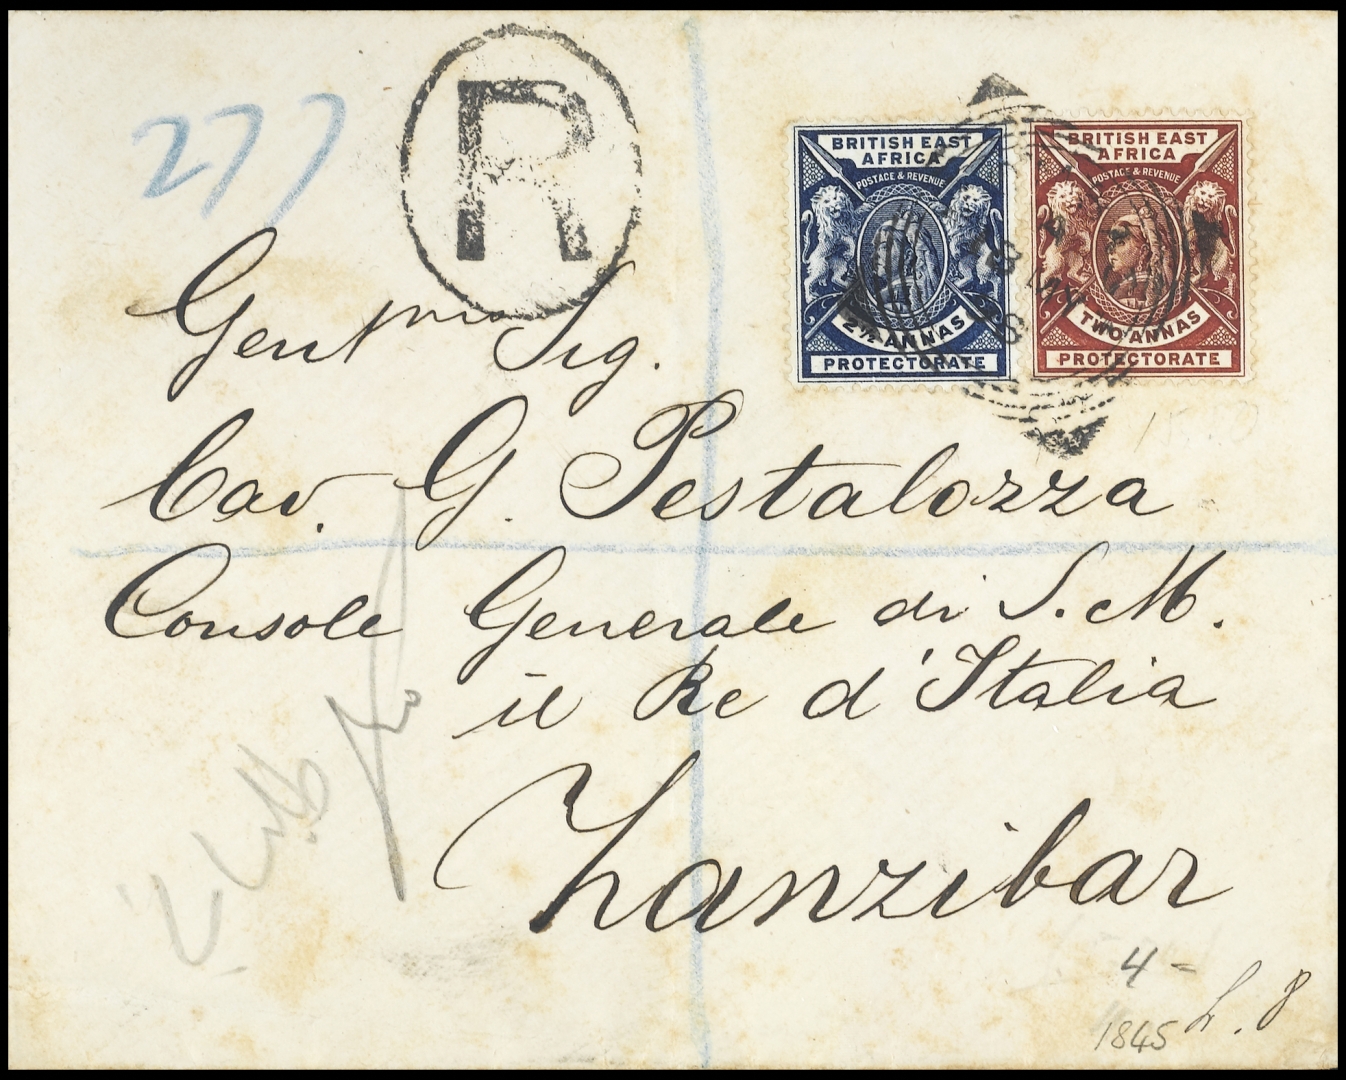 277
R
BRITISH EAST
AFRICA
POSTAGE & REVENUE
2½ ANNAS
PROTECTORATE
BRITISH EAST
AFRICA
POSTAGE & REVENUE
TWO ANNAS
PROTECTORATE
Gent mo Sig.
Cav. G. Pestalozza
Console Generale di S. M.
il Re d'Italia
Zanzibar
4 -
1845